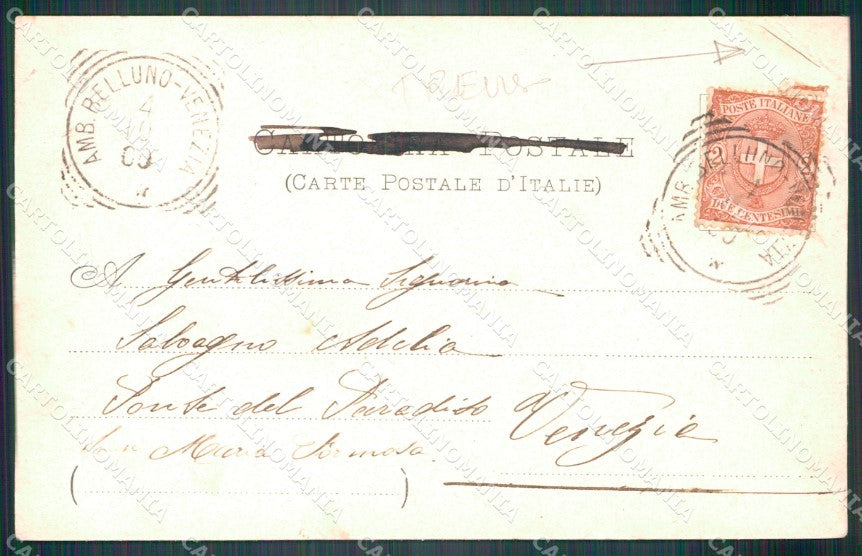 AMB. BELLUNO-VENEZIA
4
00
TREVISO
CARTOLINA POSTALE
(CARTE POSTALE D'ITALIE)
POSTE ITALIANE
2
DUE CENTESIMI
AMB. BELLUNO-VENEZIA
4
A Gentilissima Signorina
Salvagno Adelia
Ponte del Paradiso Venezia
San Maria Formosa.
( )
CARTOLINOMANIA